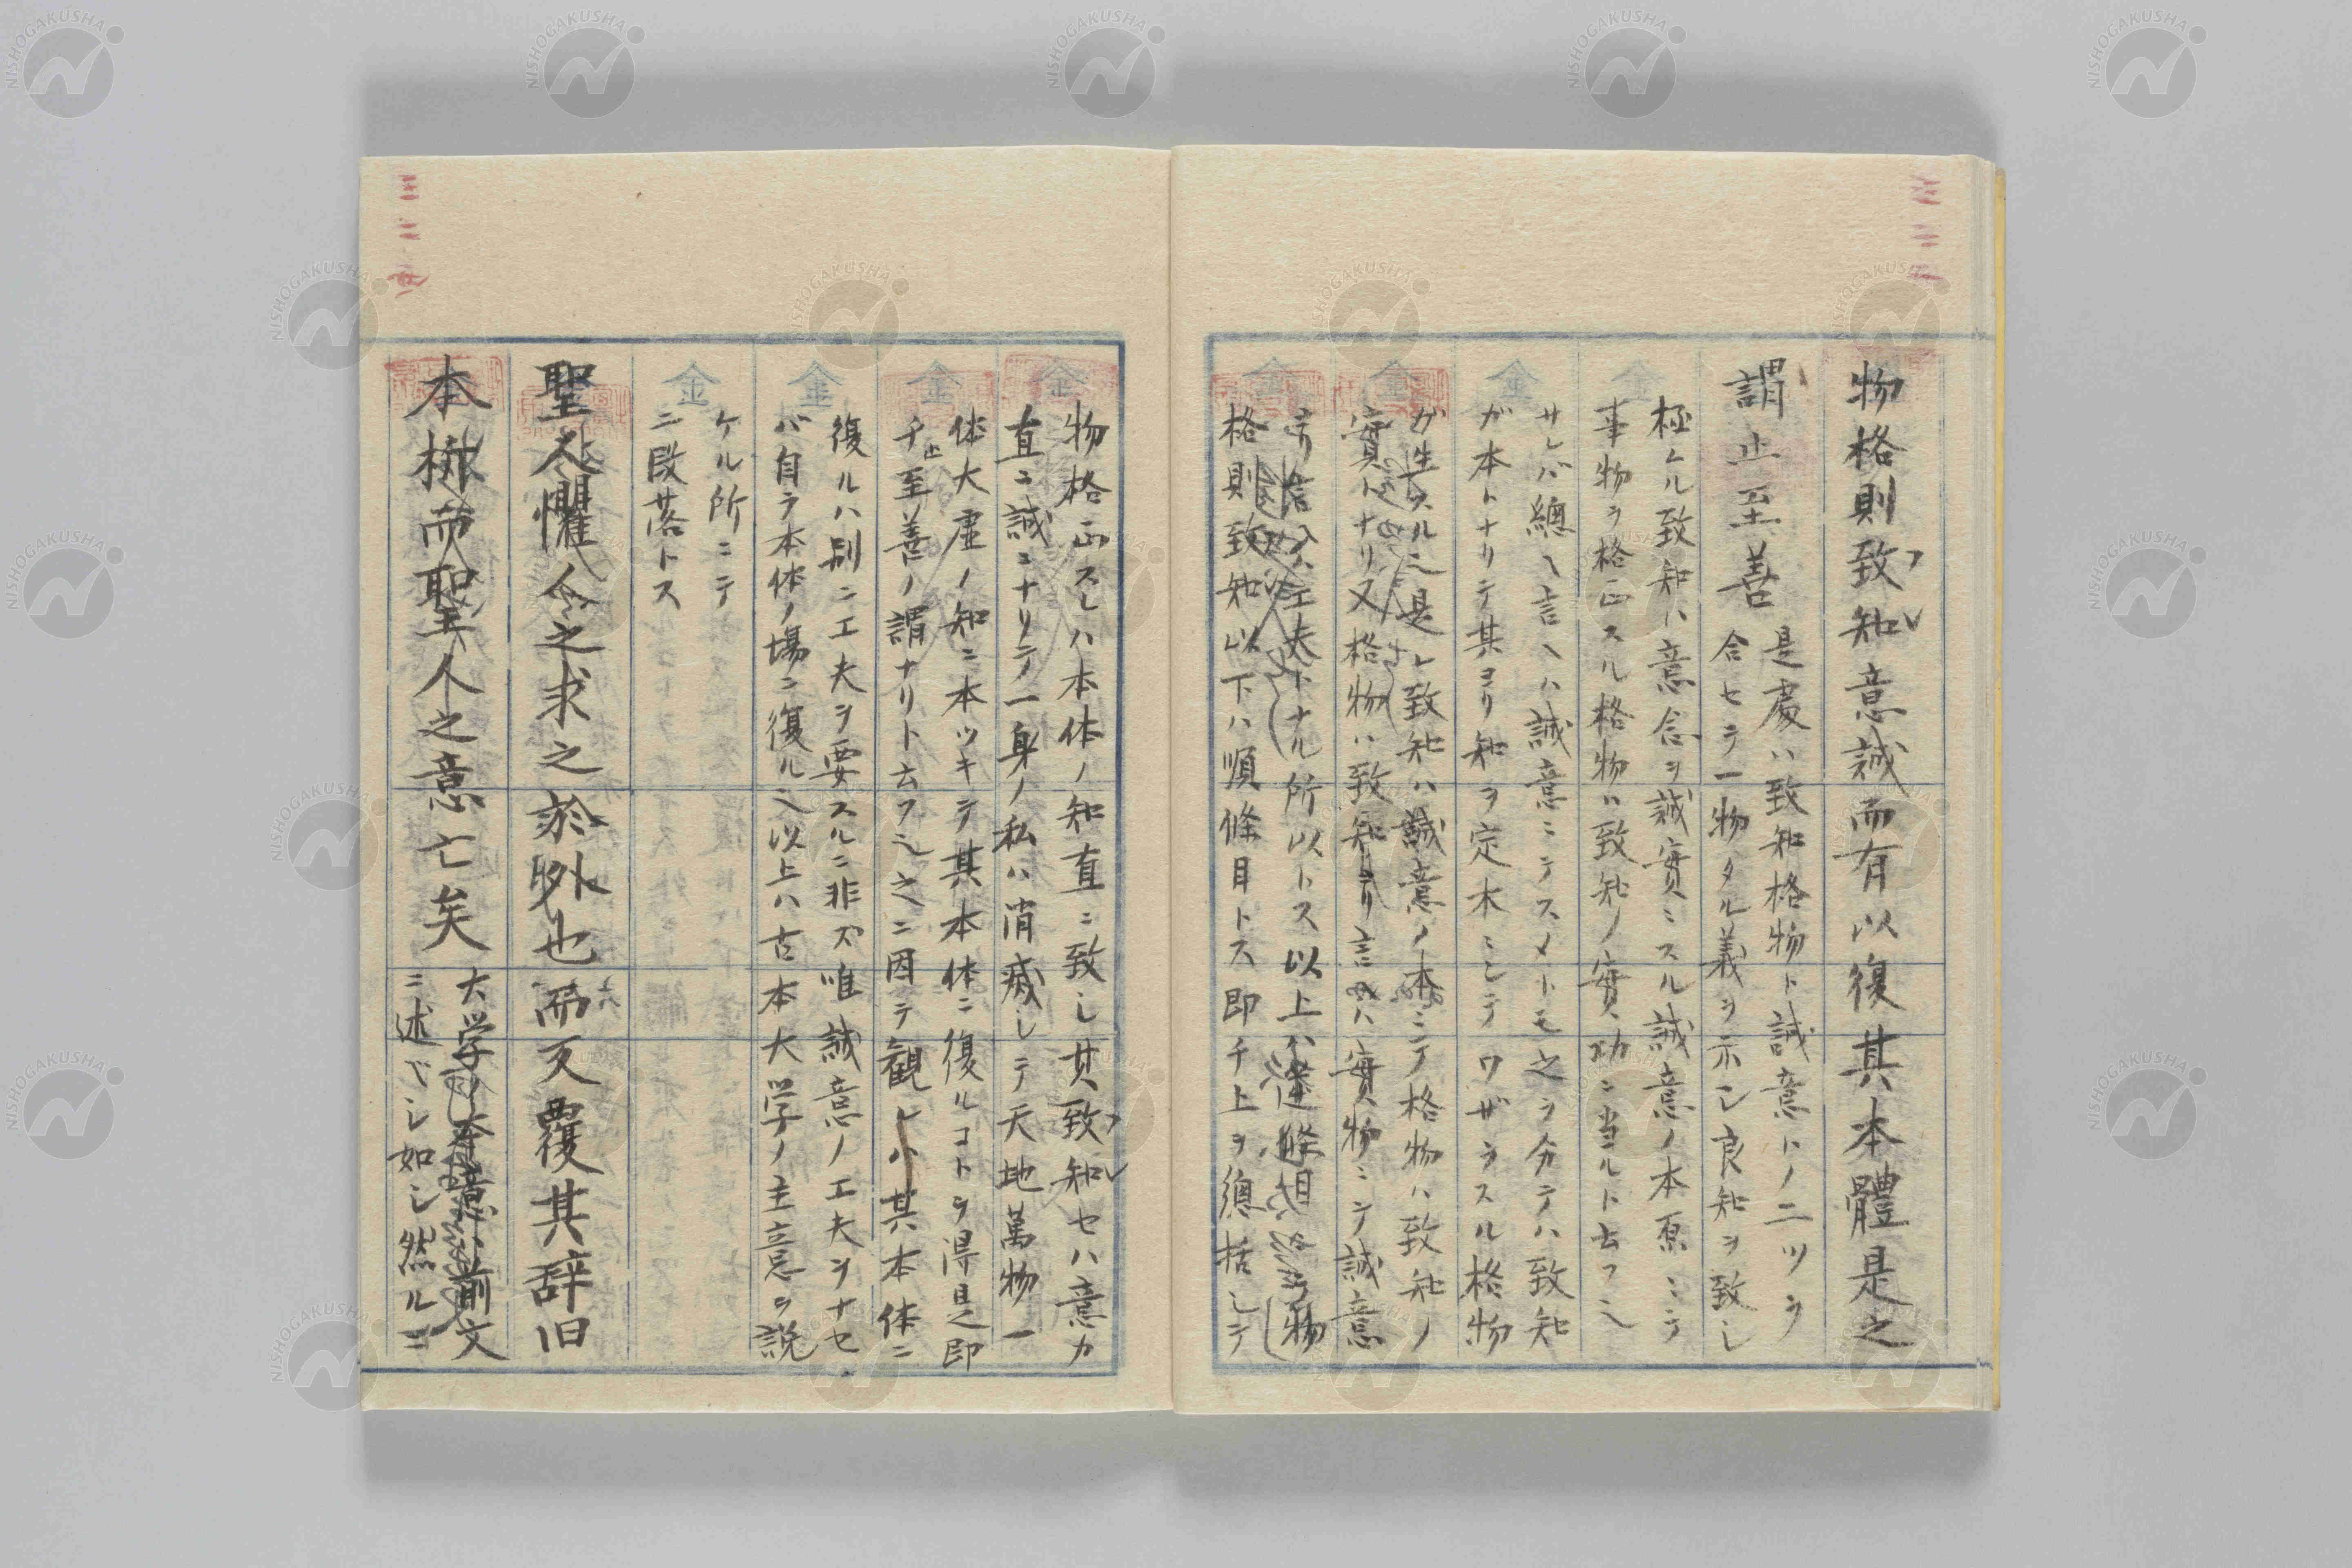 物格則致知意誠而有以復其本體是之
謂止至善
是處ハ致知格物ト誠意トノ二ツヲ
合セテ一物タル義ヲ示シ良知ヲ致シ
極ムル致知ハ意念ヲ誠實ニスル誠意ノ本原ニテ
事物ヲ格正スル格物ハ致知ノ實功ニ当ルト云フ也
サレバ總ヘ言ヘハ誠意ニテスメトモ之ヲ分テハ致知
ガ本トナリテ其ヨリ知ヲ定木ニシテワザヲスル格物
ガ生スル也是レ致知ハ誠意ノ本ニテ格物ハ致知ノ
實トナリ又格物ハ致知言ハ實物ニテ誠意
工夫トナル所以トス以上ハ逆條目
格則致知以下ハ順條目トス即チ上ヲ總括シテ
物格正スレハ本体ノ知直ニ致シ其致知セハ意カ
直ニ誠ニナリテ一身ノ私ハ消滅シテ天地萬物一
体大虚ノ知ニ本ツキテ其本体ニ復ルコトヲ得是即
チ止至善ノ謂ナリト云フ也之ニ因テ観レハ其本体ニ
復ルハ別ニ工夫ヲ要スルニ非ズ唯誠意ノ工夫ヲナセ
バ自ラ本体ノ場ニ復ル也以上ハ古本大学ノ主意ヲ説
ケル所ニテ
二段落トス
聖人懼人之求之於外也而反覆其辞旧
本析而聖人之意亡矣
大学ノ本意ハ前文
ニ述ベシ如シ然ルニ
三二
三二
NISHOGAKUSHA